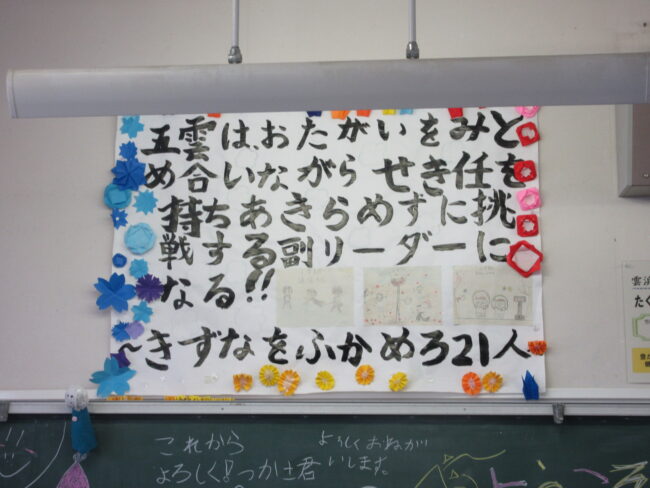 五雲は、おたがいをみと
め合いながら せき任を
持ちあきらめずに挑
戦する副リーダーに
なる!!
〜きずなをふかめろ21人〜
雲浜
たく
これから
よろしく!つかさ君
よろしくおねがい
いします。
ようこそ